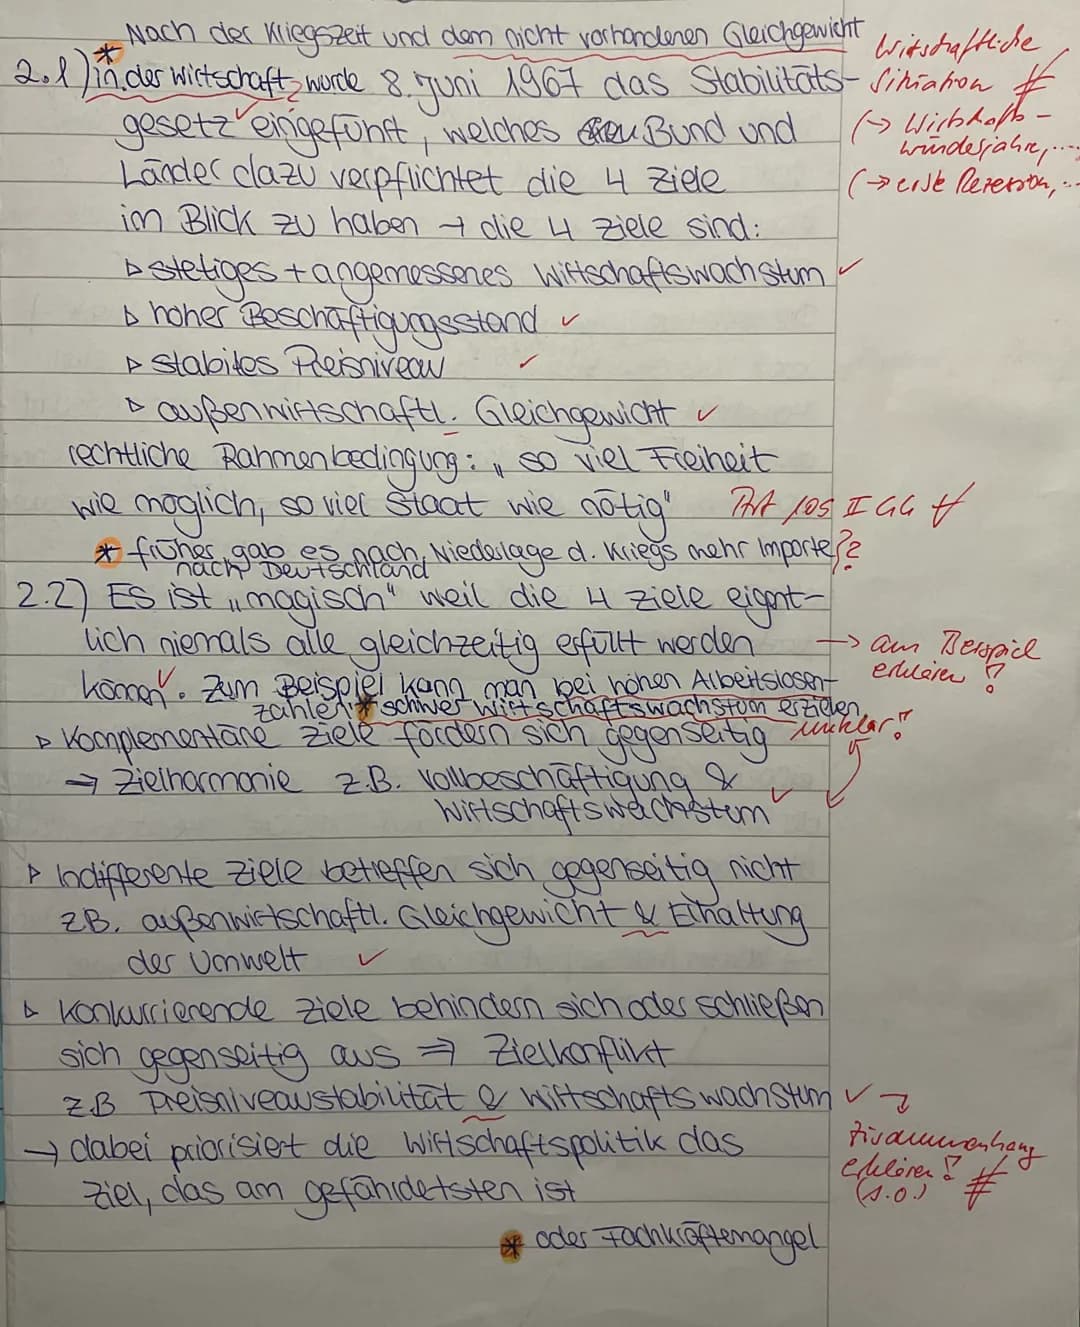 * Nach der Kriegszeit und dem nicht vorhandenen Gleichgewicht
2.1) in der Wirtschaft, wurde 8. Juni 1967 das Stabilitäts-
gesetz eingeführt, welches Bund und
Länder dazu verpflichtet die 4 Ziele
im Blick zu haben → die 4 Ziele sind:
▷ stetiges + angemessenes Wirtschaftswachstum ✓
▷ hoher Beschäftigungsstand ✓
▷ stabiles Preisniveau ✓
▷ außenwirtschaftl. Gleichgewicht ✓
rechtliche Rahmenbedingung: „so viel Freiheit
wie möglich, so viel Staat wie nötig"
* früher gab es nach Niederlage d. Kriegs mehr Importe
nach Deutschland
2.2) Es ist „magisch" weil die 4 Ziele eigent-
lich niemals alle gleichzeitig erfüllt werden
können. Zum Beispiel kann man bei hohen Arbeitslosen-
zahlen * schwer Wirtschaftswachstum erzielen
▷ Komplementäre Ziele fördern sich gegenseitig
→ Zielharmonie z.B. Vollbeschäftigung &
Wirtschaftswachstum ✓
▷ Indifferente Ziele betreffen sich gegenseitig nicht
z.B. außenwirtschaftl. Gleichgewicht & Erhaltung
der Umwelt ✓
▷ Konkurrierende Ziele behindern sich oder schließen
sich gegenseitig aus ⇒ Zielkonflikt
z.B Preisniveaustabilität & Wirtschaftswachstum ✓
→ dabei priorisiert die Wirtschaftspolitik das
Ziel, das am gefährdetsten ist
* oder Fachkräftemangel
Wirtschaftliche
Situation #
(→ Wirtschafts-
wunderjahre,...
(→ erste Rezession,...
Art 109 II GG
??
→ am Beispiel
erklären?
unklar!
Zusammenhang
erklären! #
(s.o.)